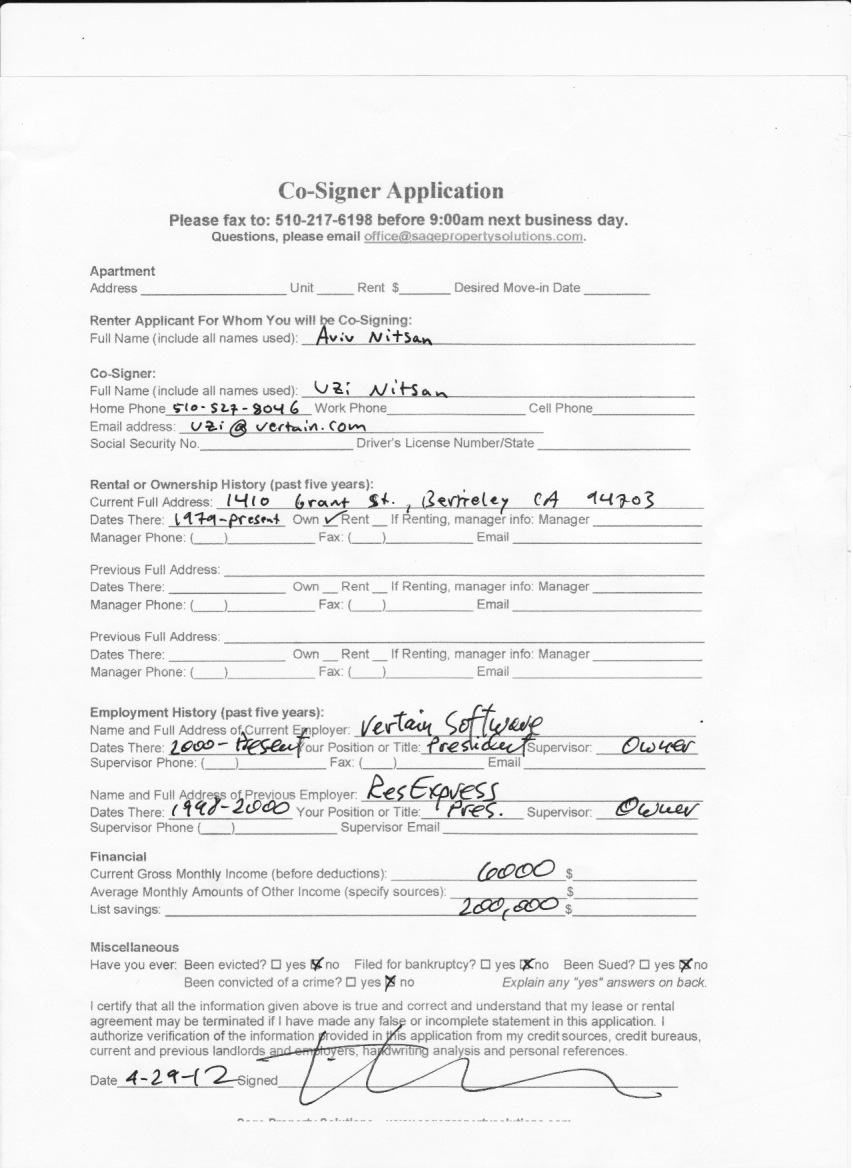 Co-Signer Application
Please fax to: 510-217-6198 before 9:00am next business day.
Questions, please email office@sagepropertysolutions.com.
Apartment
Address ____ Unit ____ Rent $____ Desired Move-in Date ____
Renter Applicant For Whom You will be Co-Signing:
Full Name (include all names used): Aviv Nitsan
Co-Signer:
Full Name (include all names used): Uzi Nitsan
Home Phone 510-527-8046 Work Phone____ Cell Phone____
Email address: uzi@vertain.com
Social Security No.____ Driver's License Number/State ____
Rental or Ownership History (past five years):
Current Full Address: 1410 Grant St., Berkeley CA 94703
Dates There: 1979-present Own ✓ Rent __ If Renting, manager info: Manager ____
Manager Phone: (____)____ Fax: (____)____ Email ____
Previous Full Address: ____
Dates There: ____ Own __ Rent __ If Renting, manager info: Manager ____
Manager Phone: (____)____ Fax: (____)____ Email ____
Previous Full Address: ____
Dates There: ____ Own __ Rent __ If Renting, manager info: Manager ____
Manager Phone: (____)____ Fax: (____)____ Email ____
Employment History (past five years):
Name and Full Address of Current Employer: Vertain Software
Dates There: 2000-Present Your Position or Title: President Supervisor: Owner
Supervisor Phone: (____)____ Fax: (____)____ Email ____
Name and Full Address of Previous Employer: ResExpress
Dates There: 1998-2000 Your Position or Title: Pres. Supervisor: Owner
Supervisor Phone (____)____ Supervisor Email ____
Financial
Current Gross Monthly Income (before deductions): 6000 $____
Average Monthly Amounts of Other Income (specify sources): ____ $____
List savings: 200,000 $____
Miscellaneous
Have you ever: Been evicted? ☐ yes ☒ no Filed for bankruptcy? ☐ yes ☒ no Been Sued? ☐ yes ☒ no
Been convicted of a crime? ☐ yes ☒ no Explain any "yes" answers on back.
I certify that all the information given above is true and correct and understand that my lease or rental
agreement may be terminated if I have made any false or incomplete statement in this application. I
authorize verification of the information provided in this application from my credit sources, credit bureaus,
current and previous landlords and employers, handwriting analysis and personal references.
Date 4-29-12 Signed